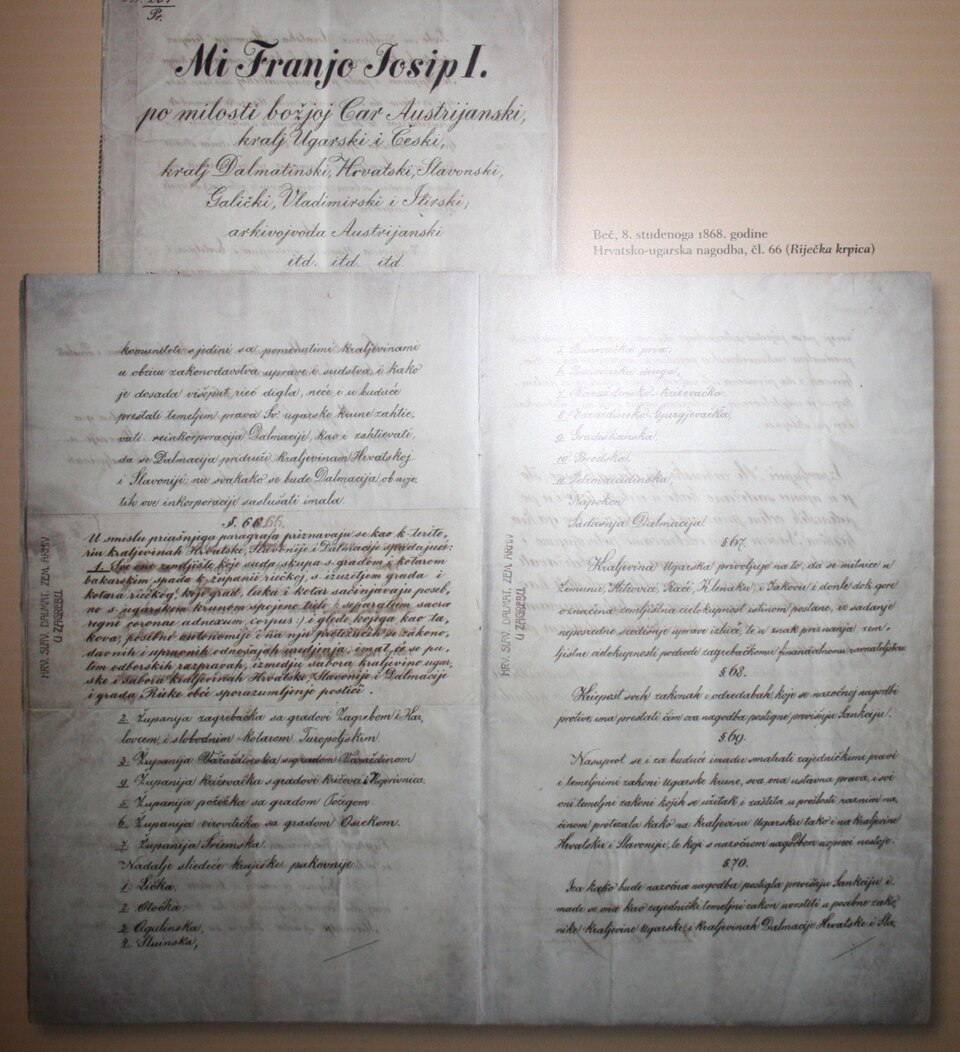 Pr.
Mi Franjo Iosip I.
po milosti božjoj Car Austrijanski,
kralj Ugarski i Češki,
kralj Dalmatinski, Hrvatski, Slavonski,
Galički, Vladimirski i Ilirski;
arkivojvoda Austrijanski
itd. itd. itd.
Beč, 8. studenoga 1868. godine
Hrvatsko-ugarska nagodba, čl. 66 (Riječka krpica)
komuniteti sjedini sa pomenutimi kraljevinami
u obziru zakonodavstva uprave i sudstva, i kako
je dosada višeput rieč digla, neće i u buduće
prestati temeljem prava Sv ugarske krune zahtie,
vati reinkorporacija Dalmacije, kao i zahtievati,
da se Dalmacija pridruži kraljevinam Hrvatskoj
i Slavoniji; nu svakako se bude Dalmacija ob uvje,
tih ove inkorporacije saslušati imala
§. 66.
U smislu priašnjega paragrafa priznavaju se kao k terito,
riu kraljevinah Hrvatske, Slavonije i Dalmacije spadajuće:
1. Sve ono zemljište koje sada skupa s gradom i kotarom
bakarskim spada k županii riečkoj, s izuzetjem grada i
kotara riečkog, koji grad, luka i kotar sačinjavaju poseb,
no s ugarskom krunom spojeno tielo (: separatum sacra
regni coronae adnexum corpus:) i glede kojega kao ta,
kova, posebne autonomije i na nju protežućih se zakono,
davnih i upravnih odnošajah imat će se pu,
tem odborskih razpravah, izmedju sabora kraljevine ugar,
ske i sabora kraljevinah Hrvatske, Slavonije i Dalmacije
i grada Rieke obće sporazumljenje postići.
2. Županija zagrebačka sa gradovi Zagrebom i Kar,
lovcem i slobodnim kotarom Turopoljskim
3. Županija Varaždinska s gradom Varaždinom
4. Županija križevačka s gradovi Križevci i Koprivnica
5. Županija požežka sa gradom Požegom
6. Županija virovitička sa gradom Osiekom.
7. Županija Sriemska.
Nadalje sliedeće krajiške pukovnije
1. Lička
2. Otočka
3. Ogulinska
4. Sluinska,
HRV. SLAV. DALMAT. ZEM. ARKIV
U ZAGREBU.
5. Banovačka prva,
6. Banovačka druga,
7. Varaždinsko križevačka,
8. Varaždinsko Gjurgjevačka,
9. Gradiškanska,
10. Brodska,
11. Petrovaradinska,
Napokon
Sadašnja Dalmacija
§ 67.
Kraljevina Ugarska privoljuje na to, da se mitnice u
Zemunu, Mitrovici, Rači, Klenaku, i Jakovu i donle dok gore
označena zemljištna cielokupnost istinom postane, iz sadanje
neposredne središnje uprave izluče, te u znak priznanja zem,
ljištne cielokupnosti podrede zagrebačkomu financialnomu ravnateljstvu
§ 68.
Kriepost svih zakonah i odredabah, koji se nazočnoj nagodbi
protive, ima prestati čim ova nagodba postigne previšnju Sankciju.
§ 69.
Nasuprot se i za buduće imadu smatrati zajedničkimi pravi
i temeljnimi zakoni Ugarske krune, sva ona ustavna prava, i svi
oni temeljni zakoni kojih se užitak i zaštita u prošlosti raznim na,
činom protezala kako na kraljevinu Ugarsku tako i na kraljevine
Hrvatsku i Slavoniju, te koji s nazočnom nagodbom uzpreci nestoje.
§ 70.
Iza kako bude nazočna nagodba postigla previšnju Sankciju i
made se ona kao zajednički temeljni zakon uvrstiti u posebne zako,
nike kraljevine Ugarske, i kraljevinah Dalmacije Hrvatske i Sla,
HRV. SLAV. DALMAT. ZEM. ARKIV
U ZAGREBU.